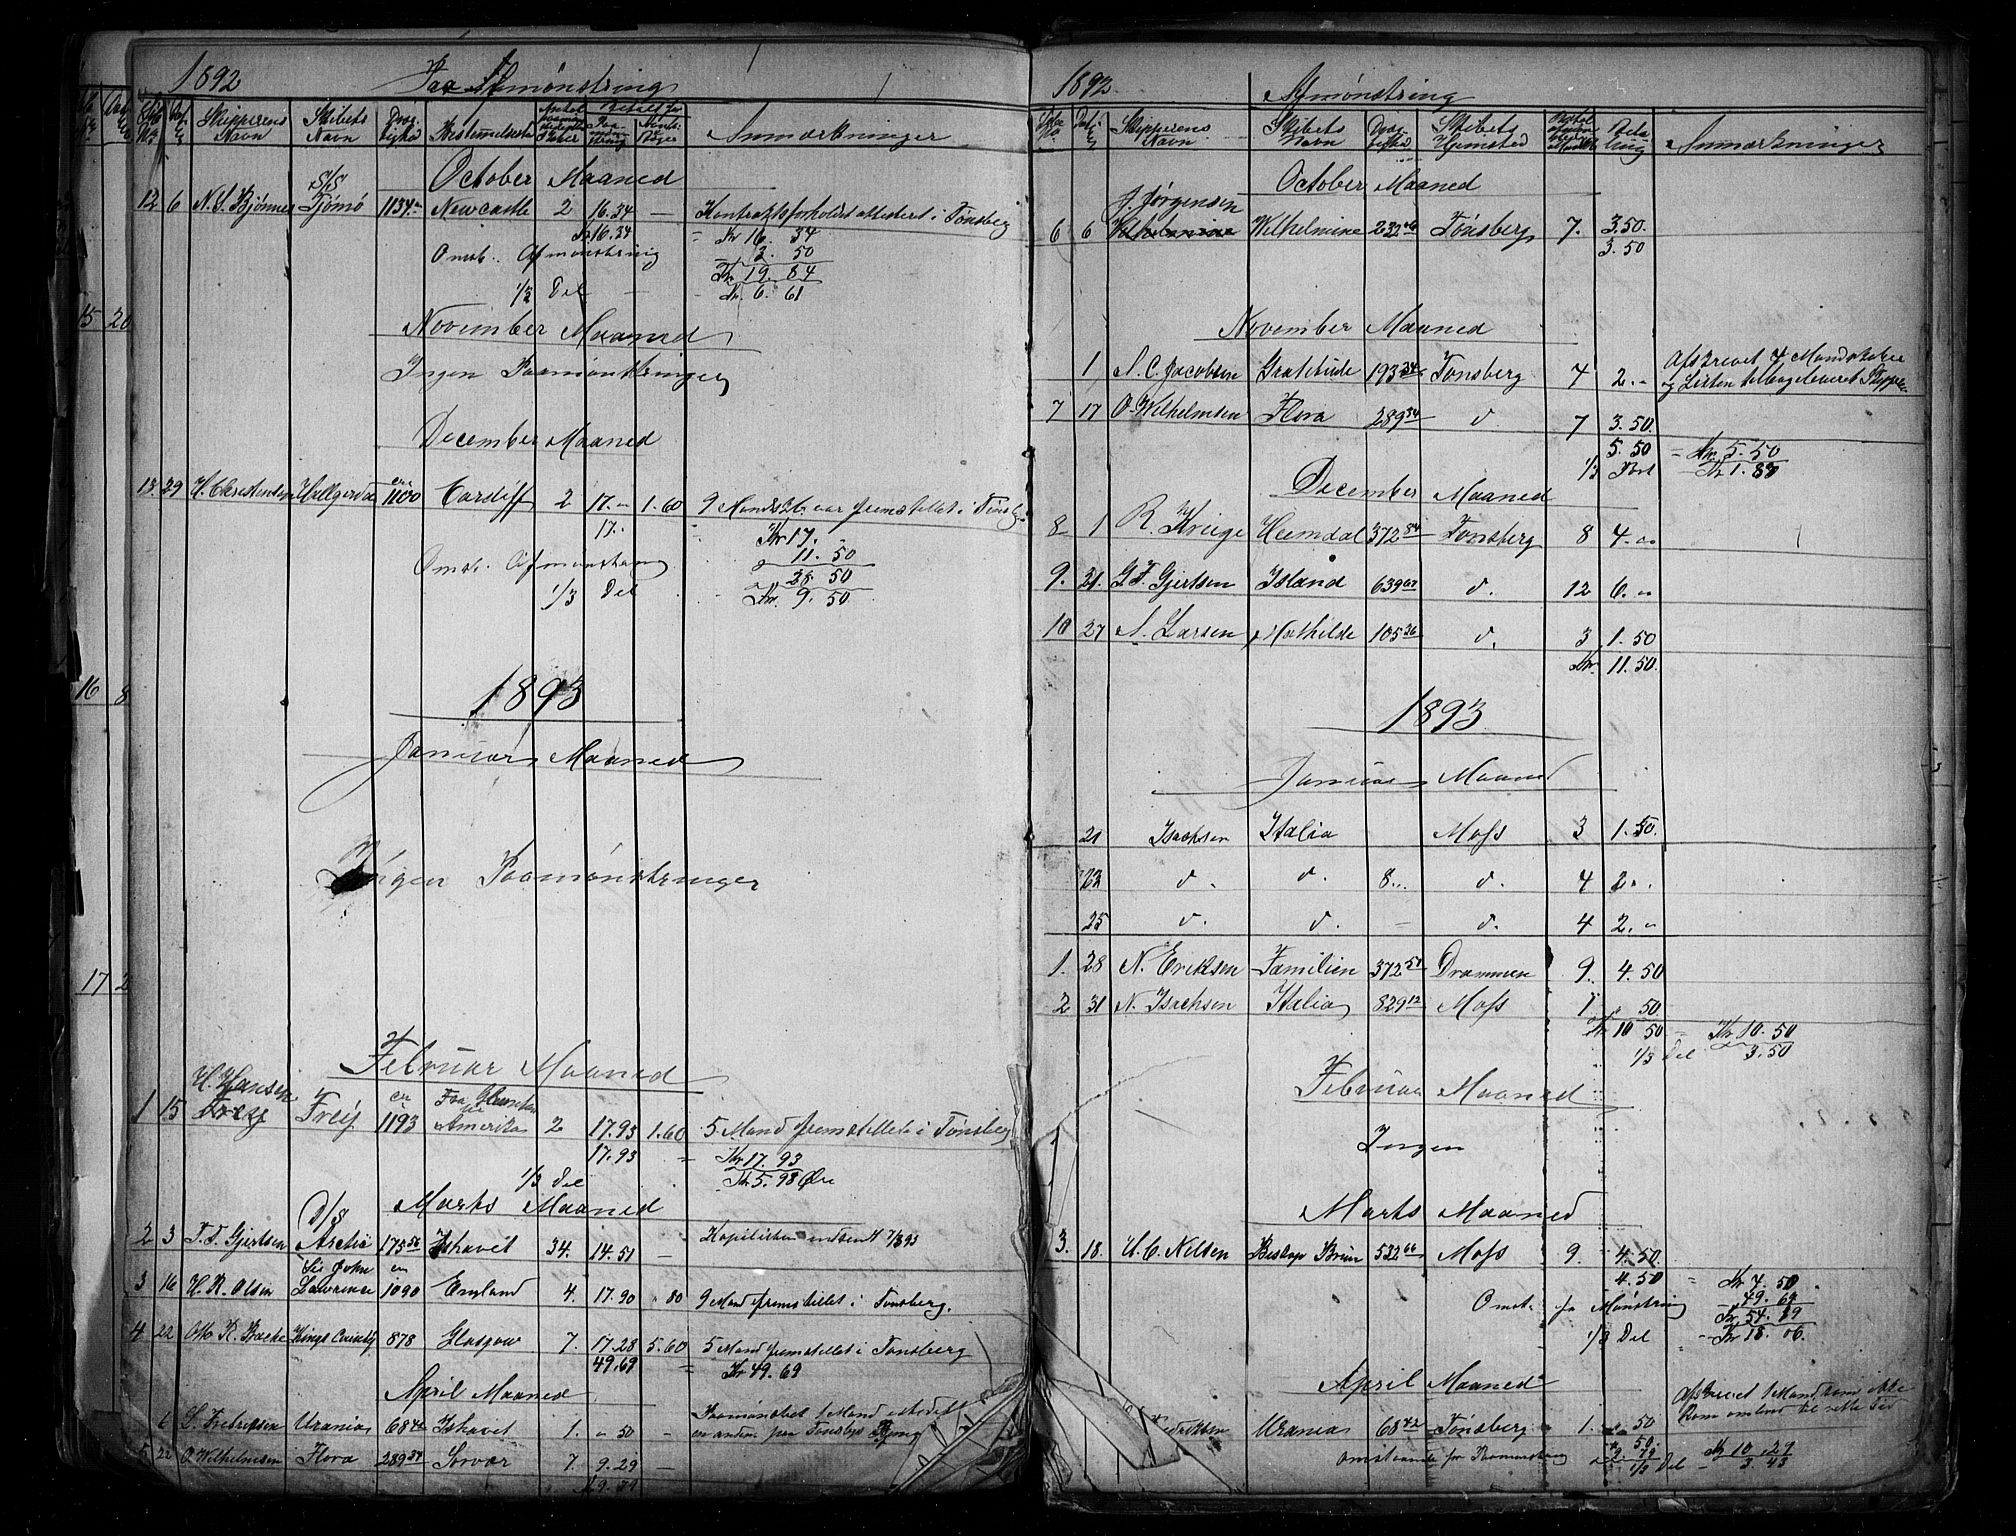 1892 Paa Afmønstring
Skipperens Navn Skibets Navn Bestemmelsessted Anmærkninger
October Maaned
12 6 N. S. Bjønnes S/S Tjømø 1134 Newcastle 2 16.34 — Kontraktsforholdet attesteret i Tønsberg
Kr 16.34 = Kr 16. 34
Omst. Afmønstring 3. 50
Kr. 19. 84
1/3 Del — Kr. 6. 61
November Maaned
Ingen Paamønstringer
December Maaned
13 29 H. Christensen Hallgerda 1100 Cardiff 2 17. " 1.60 9 Mandsk. var fremstillet i Tønsberg
17. Kr 17. -
Omst. Afmønstring 11. 50
" 38 50
1/3 Del Kr. 9. 50
1893
Januar Maaned
Ingen Paamønstringer
Februar Maaned
H. Hansen
1 15 Freig Freij 1193 Amerika 2 17.93 1.60 5 Mand fremstillet i Tønsberg
17.93 = Kr 17. 93
1/3 Del Kr. 5. 98 Øre
Marts Maaned
2 3 T. F. Gjertsen D/S Arctic 175 56 Ishavet 34. 14.51 — Kopilisten indsendt 7/3 93
3 16 H. R. Olsen Sir John Lawrence 1090 England 4. 17.90 " 80 9 Mand fremstillet i Tønsberg.
4 22 Otto R. Backe Kings County 878 Glasgow 7. 17.28 5.60 5 Mand fremstillet i Tønsberg
49.69 = Kr 49. 69
April Maaned
6 L. Fredriksen Urania 68 42 Ishavet 1. " 50 — Paamønstret 1 Mand istedetfor en anden paa Tønsbgs
5 22 O. Wilhelmsen Flora 289 34 Sorvær 7. 9.29 —
1892 Afmønstring
Skipperens Navn Skibets Navn Skibets Hjemsted Betaling Anmærkninger
October Maaned
J. Jørgensen
6 6 Wilhelmine Wilhelmine 232 46 Tønsberg 7. 3.50.
3.50
November Maaned
1 N. C. Jacobsen Gratitude 193 34 Tønsberg 4 2. " Afskrevet 4 Mandskaber og Listen tilbageleveret Skipper
7 17 O. Wilhelmsen Flora 289 34 d 7 3.50.
5.50 = Kr. 5. 50
1/3 Part Kr. 1. 83
December Maaned
8 1 R. Kruge Heimdal 372 84 Tønsberg 8 4. "
9. 21. G. F. Gjertsen Island 639 67 d. 12 6. "
10 27 N. Larsen Mathilde 105 36 d. 3 1.50
Kr. 11.50.
1893
Januar Maaned
21 Isachsen Italia Moss 3 1.50.
22 d. d. 8... d. 4 2. "
25 d. d. — d. 4 2. "
1. 28 N. Eriksen Familien 372 50 Drammen 9. 4.50
2 31 N. Isachsen Italia 829 12 Moss 1 50
Kr 10 50 = Kr. 10. 50
1/3 Del 3. 50
Februar Maaned
Ingen
Marts Maaned
3. 18. H. C. Nilsen Biskop Brun 532 66 Moss 9. 4.50.
4.50 = Kr. 4. 50
Omst. fr Mønstring 49. 69
Kr 54. 19
1/3 Del Kr 18. 06.
April Maaned
Fredriksen Urania 68 42 Tønsberg 1. " 50 Afskrevet 1 Mand som ikke kom ombord til rette Tid
omstaaende for Paamønstring
1/3 Del 3. 43